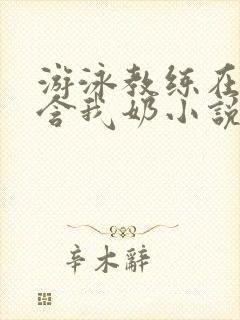 游泳教练在
含我奶小说
辛木辞